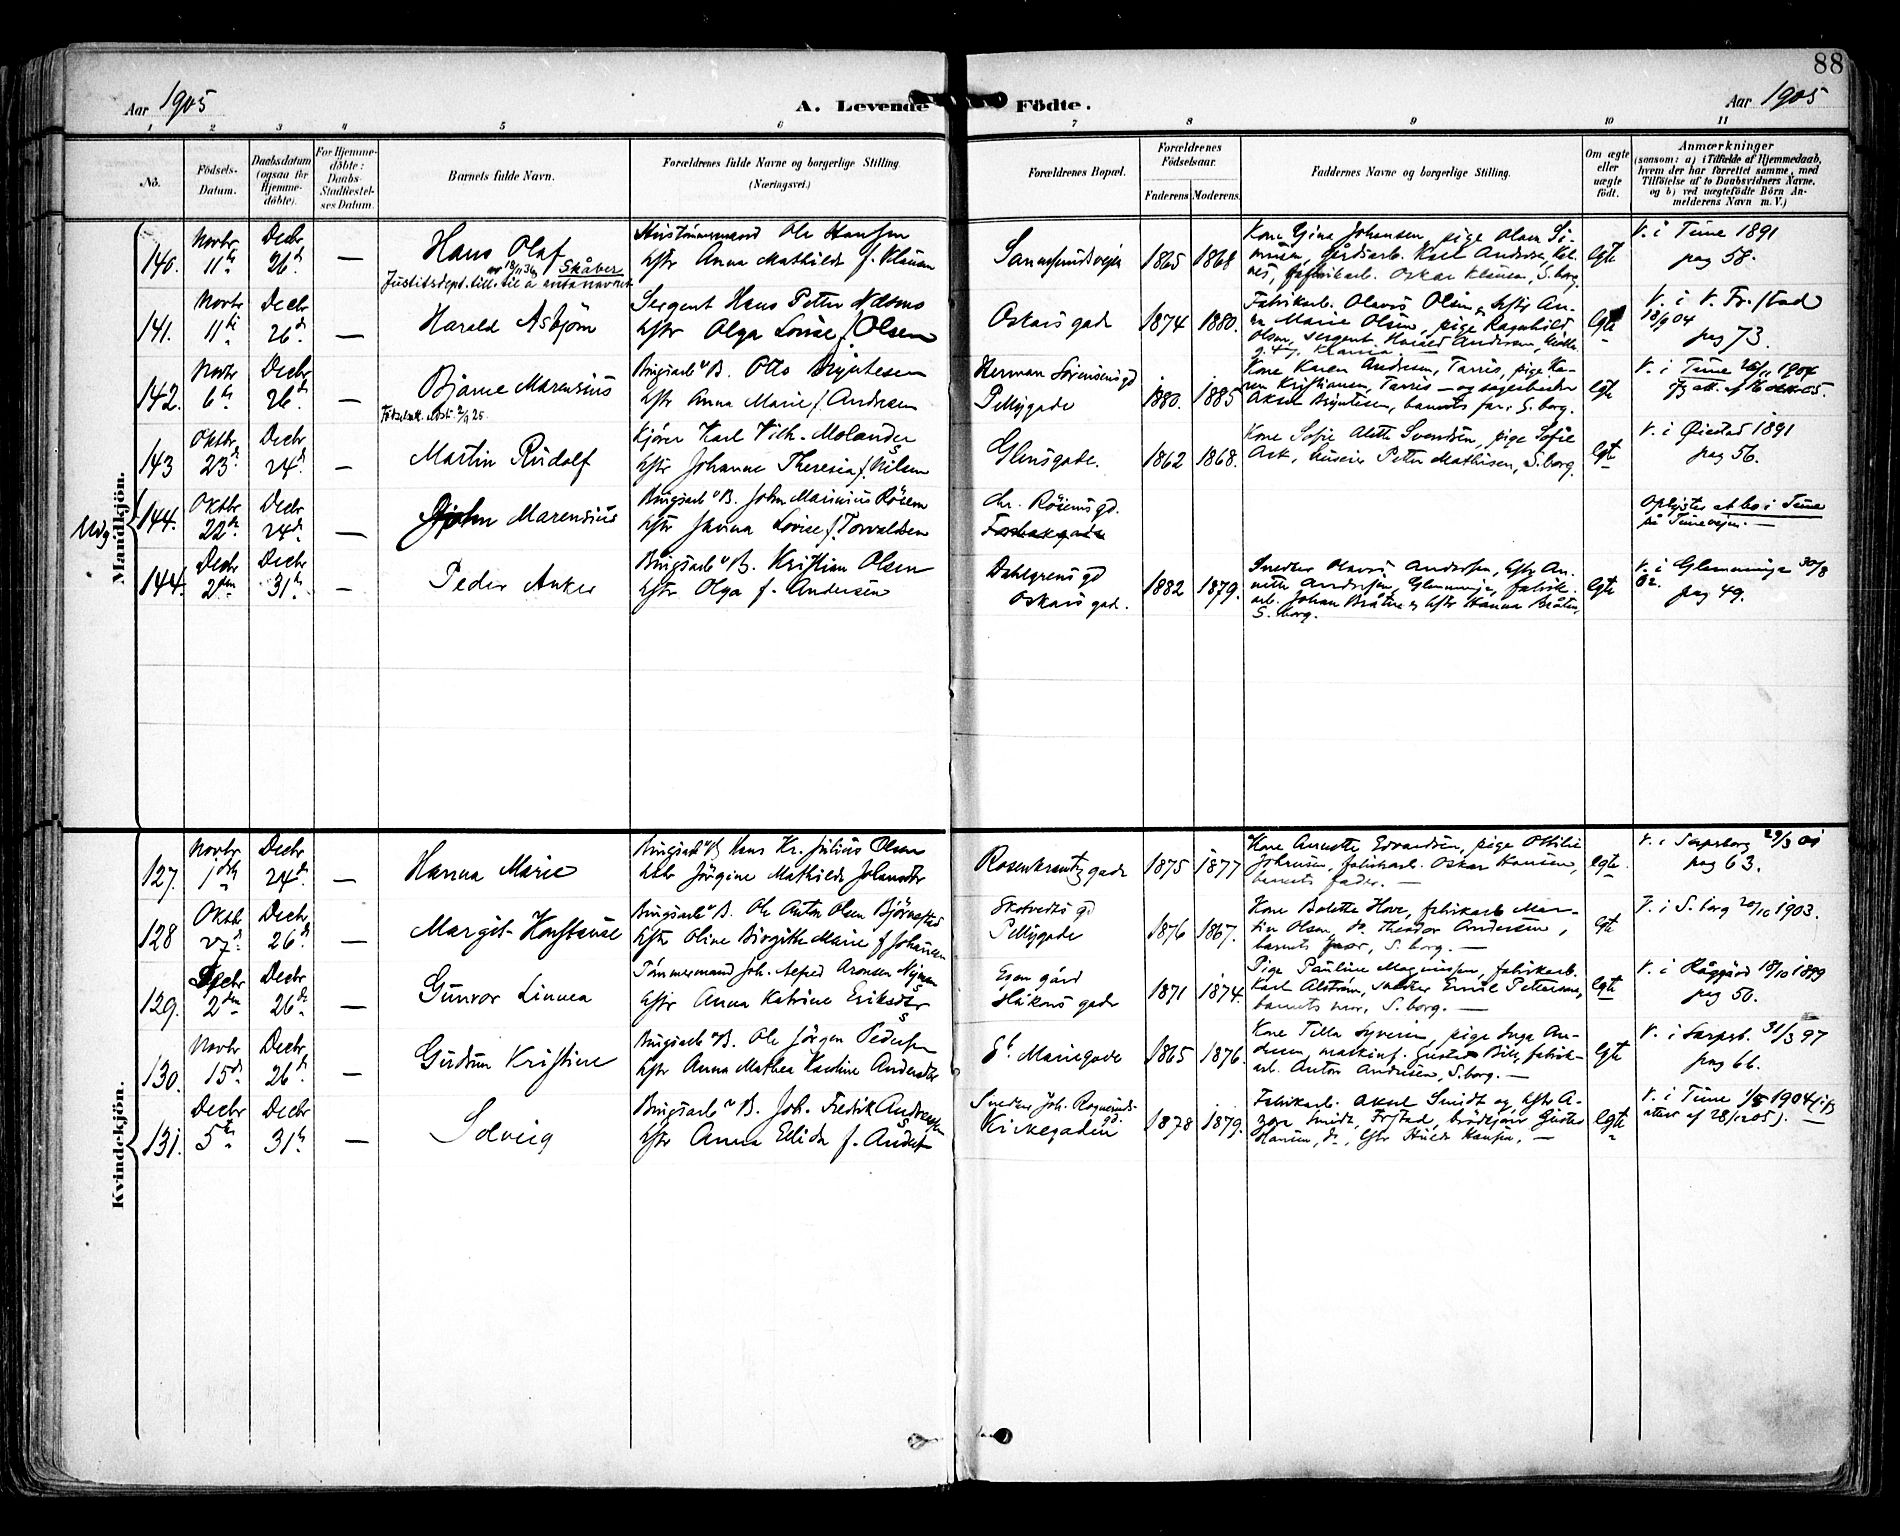 88
Aar 1905
A. Levende Fødte.
Aar 1905
1 2 3 4 5 6 7 8 9 10 11
No.
Fødsels-Datum.
Daabsdatum (ogsaa for Hjemme-døbte).
For Hjemme-døbte: Daabs-Stadfæstel-ses Datum.
Barnets fulde Navn.
Forældrenes fulde Navne og borgerlige Stilling.
(Næringsvei.)
Forældrenes Bopæl.
Forældrenes Fødselsaar.
Faderens. Moderens.
Faddernes Navne og borgerlige Stilling.
Om ægte eller uægte født.
Anmærkninger
(saasom: a) i Tilfælde af Hjemmedaab,
hvem der har forrettet samme, med
Tilføielse af to Daabsvidners Navne,
og b) ved uægtefødte Börn An-
melderens Navn m. V.)
Mandkjön.
140. Novbr 11te Decbr 26d —
Hans Olaf
Skåber
Justitsdept. till. til å anta navnet
Ole Hansen
hstr Anna Mathilde f. Klausen
1865 1868
Kone Gine Johansen, pige Olava
gårdsarb. Karl Andersen
fabrikarb. Oskar Klausen, S.borg
egte
V. i Tune 1891
pag 58.
141. Novbr 11te Decbr 26d —
Harald Asbjörn
Sergent Hans Petter Næsmo
hstr Olga Lovise f. Olsen
Oskars gade
1874 1880.
Fabrikarb. Olavs Olsen, hstr An-
na Marie Olsen, pige Ragnhild
Olsen, sergent Harald Andersen
egte
V. i V. Fr.stad
18/9 04
pag 73.
142. Novbr 6te Decbr 26d —
Bjarne Marensius
Brugsarb v B. Otto Bryntesen
hstr Anna Marie f. Andresen
Herman Sørensens gd
Pellygade
1880. 1885
Kone Karen Andresen, Tarris, pige Ka-
ren Kristiansen, Tarris — og sagarbeider
Aksel Bryntesen, barnets far, S.borg.
egte
V. i Tune 26/11 1904
143 Oktbr 23d Decbr 24d —
Martin Rudolf
Kjörer Karl Vilh. Molander
hstr Johanne Theresia f. Nilsen
Glengsgade.
1862 1868.
Kone Sofie Alette Svendsen, pige Sofie
Ask, Petter Mathisen, S.borg.
egte
V. i Øiestad 1891
pag 56.
Udg.
144. Oktbr 22d Decbr 24d. —
John Marensius
Brugsarb v B. John Marinius Røsem
hstr Janna Lovise f. Torvaldsen
Chr. Røsems gd.
Oplyster at bo i Tune
på Tunevejen. —
144. Decbr 2den Decbr 31te —
Peder Anker
Brugsarb v B. Kristian Olsen
hstr Olga f. Andersen
Dahlgrens gd
Oskars gade.
1882 1879.
Smedker Olavs Andersen, hstr An-
nette Andersen, Glemminge, fabrik-
arb. Johan Bråten og hstr Hanna Bråten,
S.borg.
egte
V. i Glemminge 30/8
02. pag 49.
Kvindekjön.
127. Novbr 1ste Decbr 24de —
Hanna Marie
Brugsarb v B Hans Kr. Julius Olsen
hstr Jörgine Mathilde Johansdtr
Rosenkrantz gade
1875 1877
Kone Annette Edvardsen, pige Othilie
Johnsen, fabrikarb. Oskar Hansen,
barnets fader. —
egte.
V. i Sarpsborg 29/3 01
pag 63.
128 Oktbr 27d Decbr 26d —
Margit Konstanse
Brugsarb v B. Ole Anton Olsen Björnstad
hstr Oline Birgitte Marie f Johansen
Skotvedts gd
Pellygade
1876 1867.
Kone Bolette Hove, fabrikarb Mar-
tin Olsen, do Theodor Andersen,
barnets far, S.borg. —
egte
V. i S.borg 20/10 1903.
129. Decbr 2den Decbr 26de —
Gunvor Linnea
Tømmermand Joh. Alfred Aronsen Nyman
hstr Anna Katrine Eriksdtr
Håkons gade
1871 1874.
Pige Pauline Magnussen, fabrikarb.
Karl Alström, Emil Pettersen,
barnets mor, S.borg. —
egte
V. i Råggärd 18/10 1899
pag 50.
130. Novbr 15de Decbr 26de —
Gudrun Kristine
Brugsarb v B. Ole Jörgen Pedersen
hstr Anna Mathea Karoline Andersdtr
St. Mariegade
1865 1876.
Kone Tilla Syversen, pige Inga An-
dersen, maskinf. Gustav Bilz, fabrik-
arb. Anton Andersen, S.borg. —
egte
V. i Sarpsb. 31/3 97
pag 66.
131. Decbr 5te Decbr 31te
Solveig
Brugsarb v B. Joh. Fredrik Andreassen
hstr Anna Elida f. Andersdtr
Kirkegaden
1878 1879.
Fabrikarb. Aksel Smidt og hstr A-
gnes Smidt, Fr.stad, brödkjører Gustav
Hansen, do, hstr Hulda Hansen. —
egte
V. i Tune 1/5 1904 (ifg
attest af 28/12 05). —